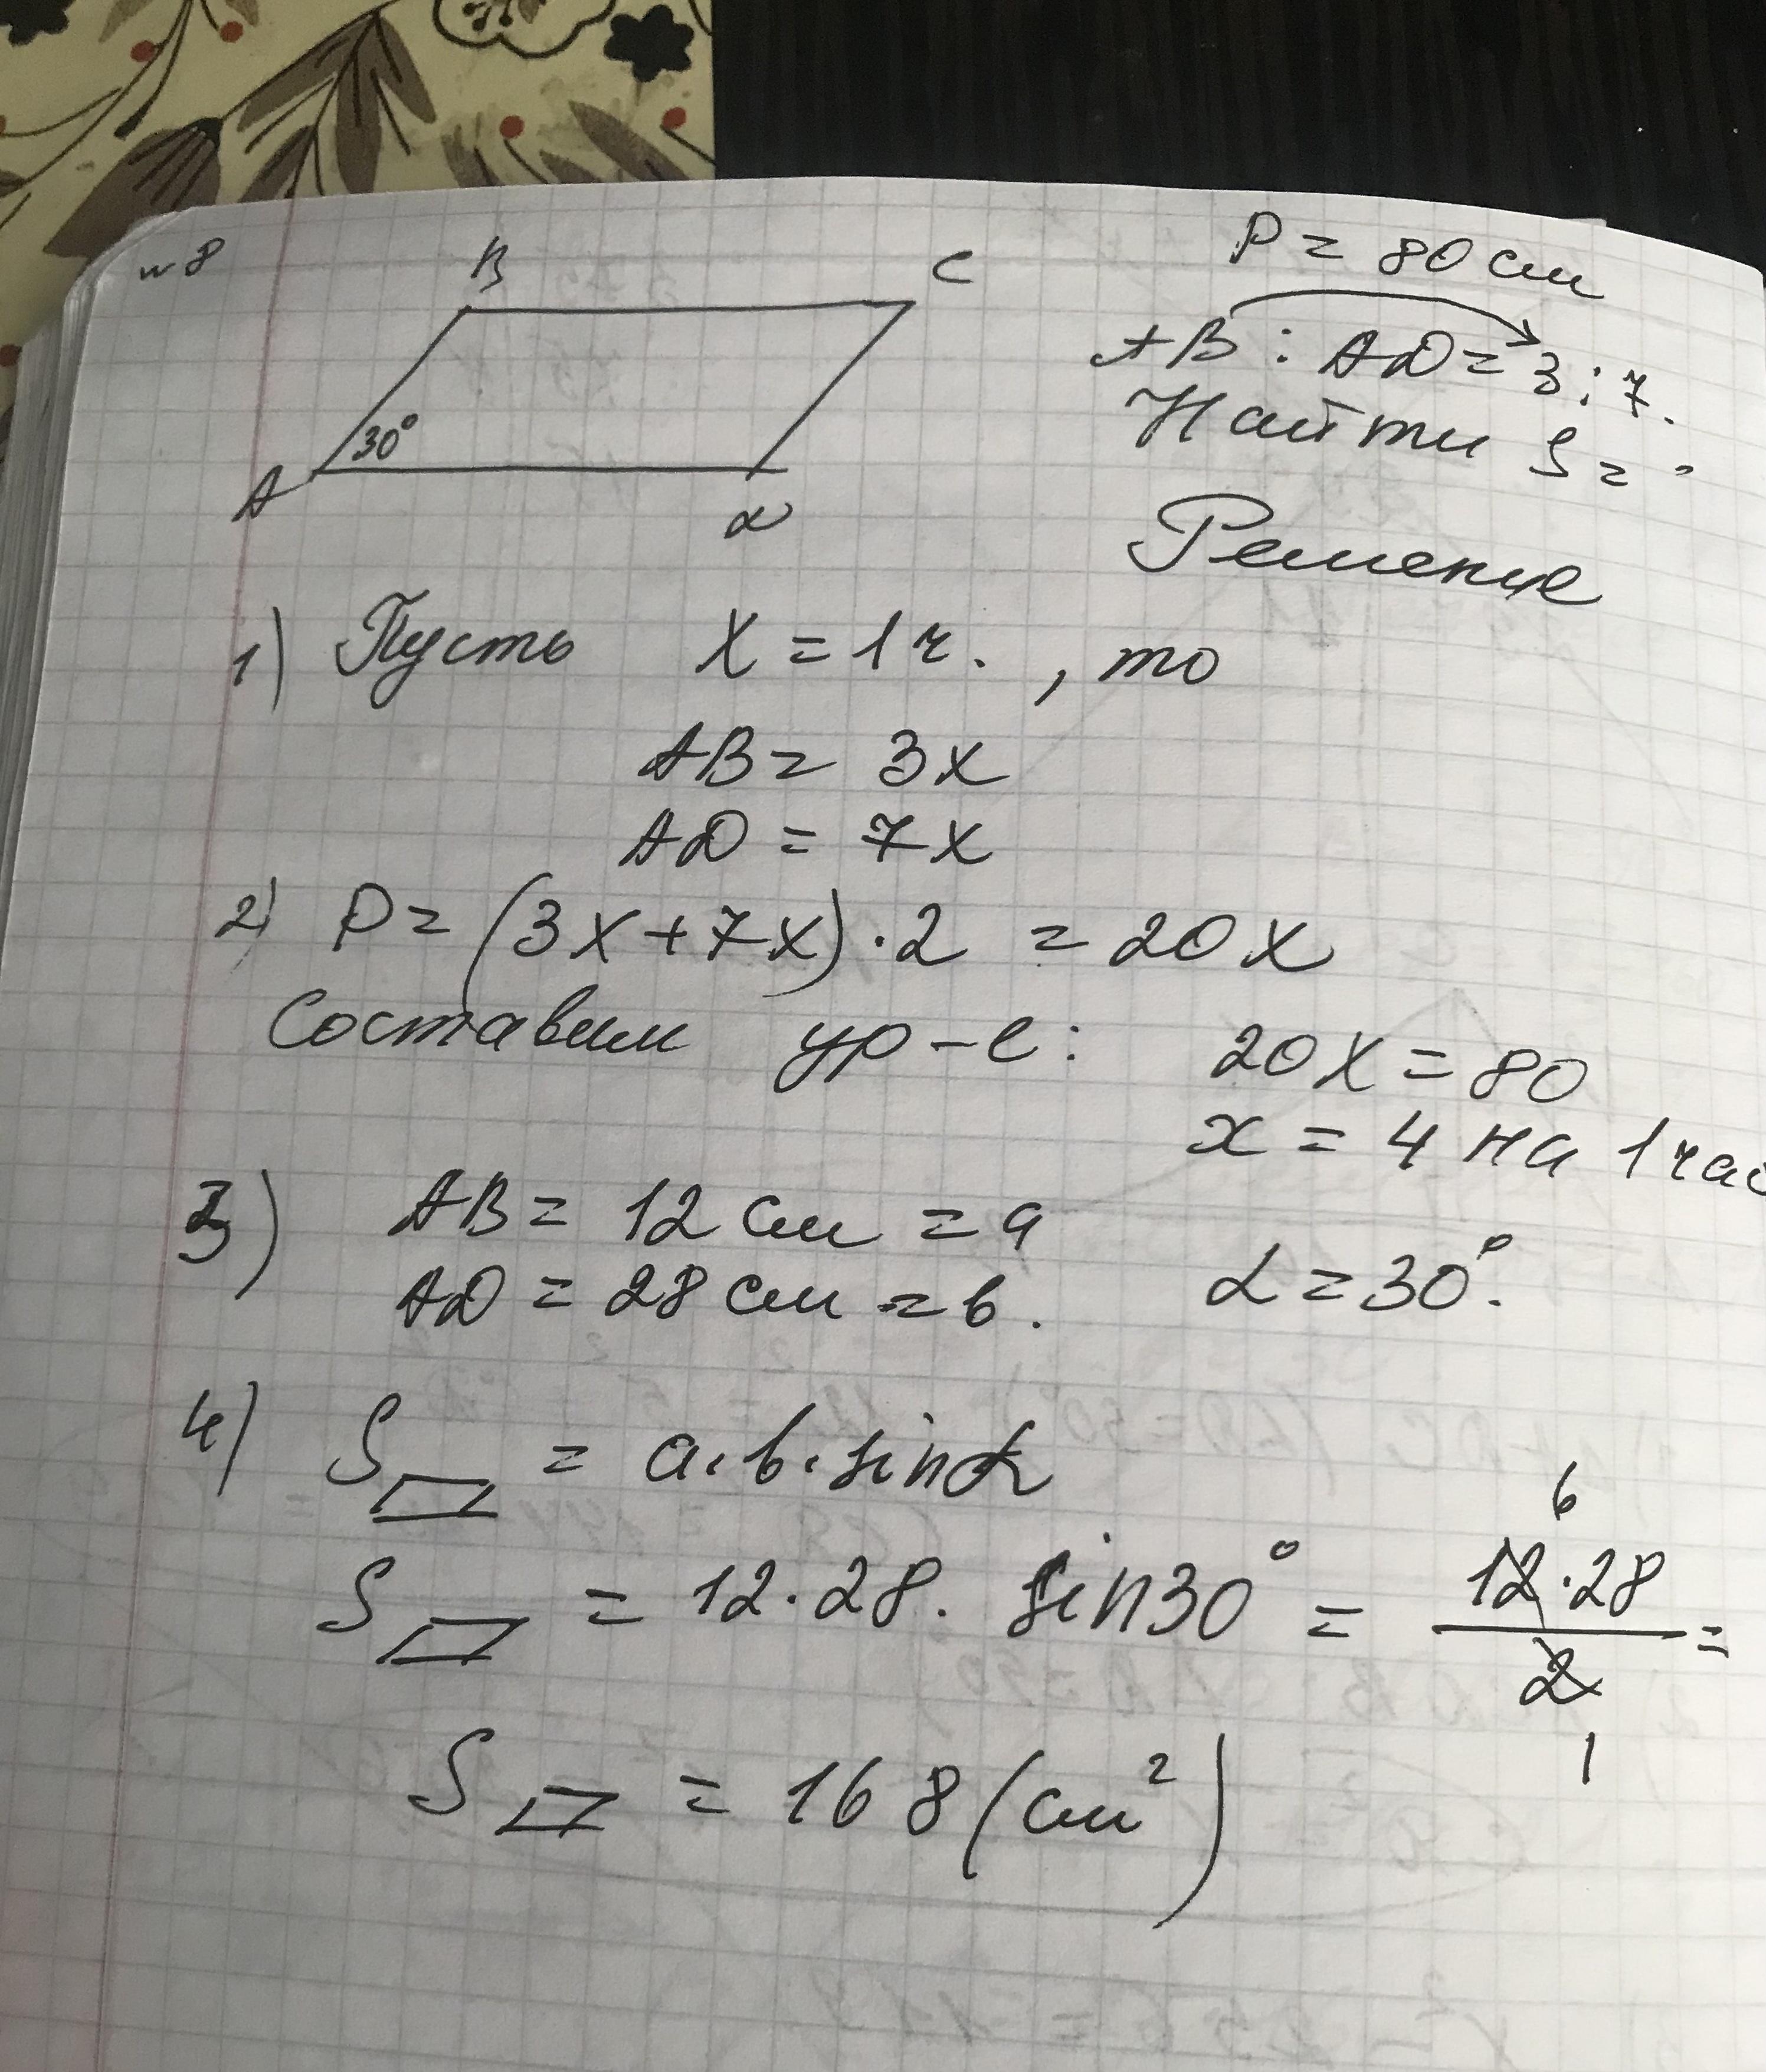 №8
B C
30°
A D
P = 80 см
AB : AD = 3 : 7.
Найти S = ?
Решение
1) Пусть x = 1 ч. , то
AB = 3x
AD = 7x
2) P = (3x + 7x) · 2 = 20x
Составим ур-е: 20x = 80
x = 4 на 1 час
3) AB = 12 см = a
AD = 28 см = b. α = 30°.
4) S▱ = a · b · sinα
S▱ = 12 · 28 · sin30° = 12 · 28 / 2 =
6
1
S▱ = 168 (см²)